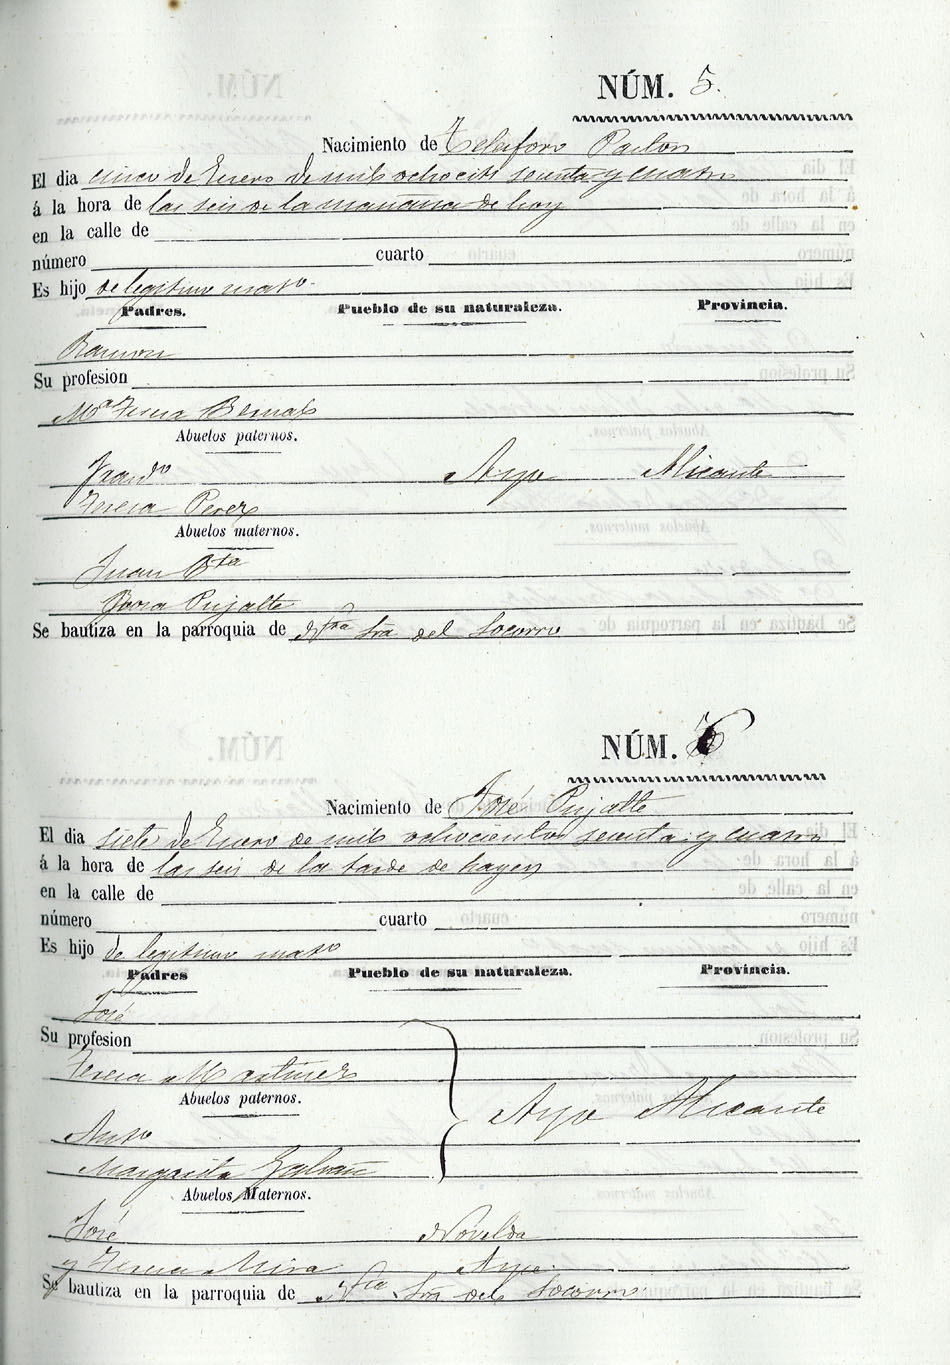 NÚM. 5.
Nacimiento de Telesforo Pavlon
El dia cinco de Enero de mil ochocits setenta y cuatro
á la hora de las seis de la mañana de hoy
en la calle de
número cuarto
Es hijo de legitimo mato.
Padres. Pueblo de su naturaleza. Provincia.
Ramon
Su profesion
Mª Teresa Bernal
Abuelos paternos.
Aspe Alicante
Teresa Perez
Abuelos maternos.
Juan Bta
Rosa Pujalte
Se bautiza en la parroquia de Ntra Sra del Socorro
NÚM. 6
Nacimiento de José Pujalte
El dia siete de Enero de mil ochocientos setenta y cuatro
á la hora de las seis de la tarde de
en la calle de
número cuarto
Es hijo de legitimo mato
Padres Pueblo de su naturaleza. Provincia.
José
Su profesion
Teresa Martinez
Abuelos paternos.
Aspe Alicante
Anto
Margarita Galvañ
Abuelos Maternos.
José Novelda
y Teresa Mira Aspe
Se bautiza en la parroquia de Ntra Sra del Socorro